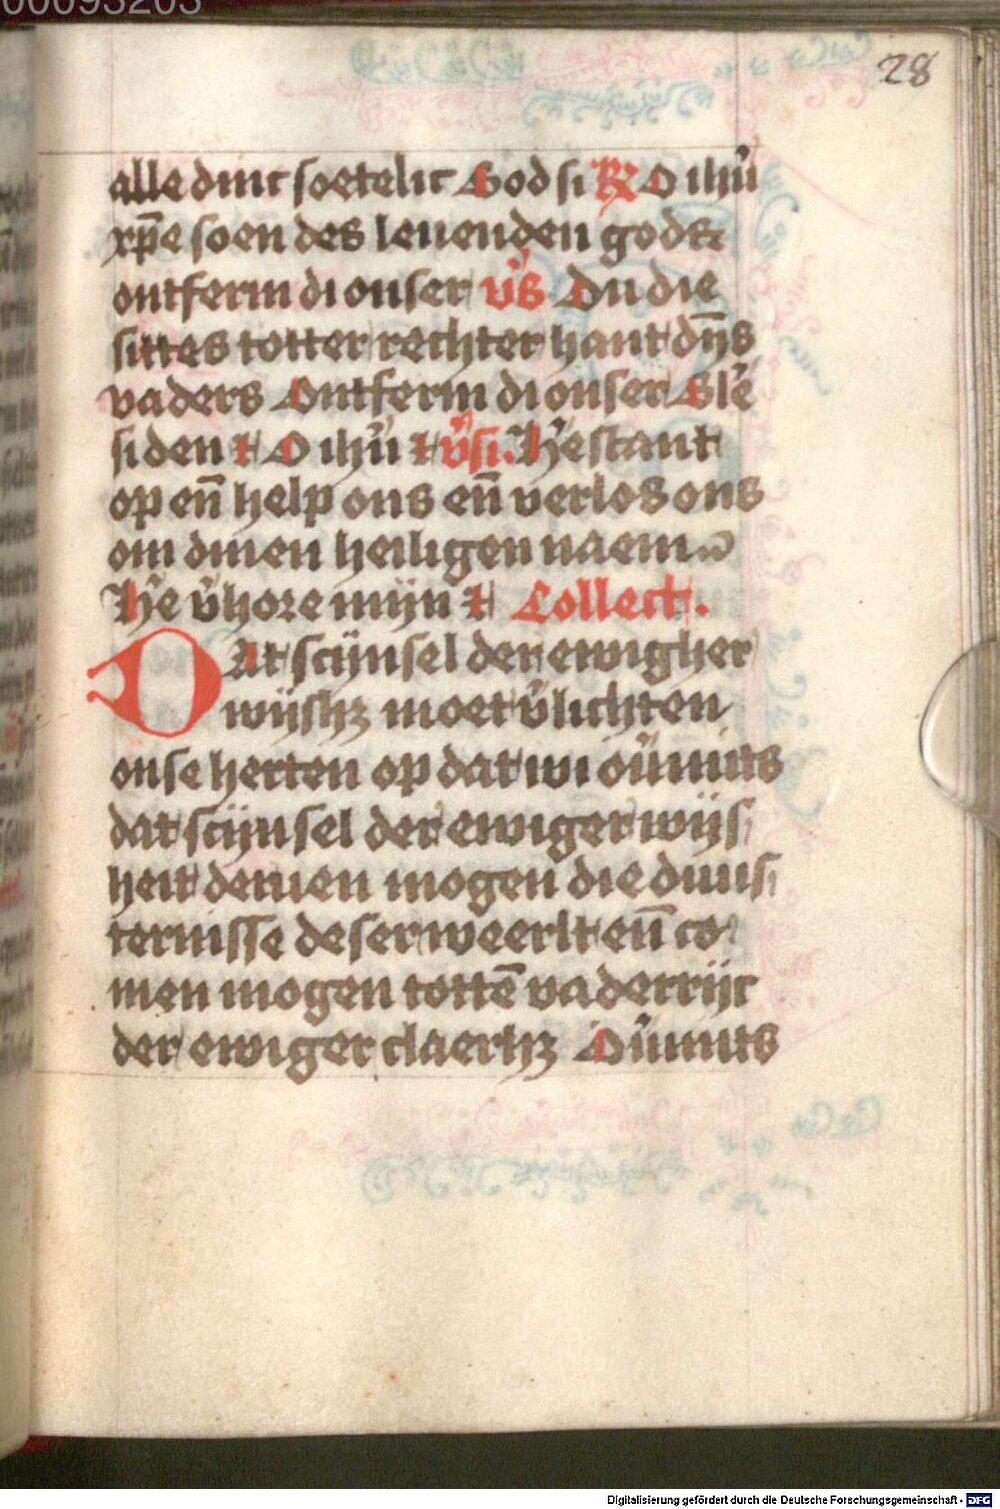 00093203
28
alle dinc soetelic God si R O ihū
xp̄e soen des leuenden gods
ontferm di onser v̄s Du die
sittes totter rechter hant dȳs
vaders Ontferm di onser Glē
si den t O ihū t v̄si. H̄e stant
op en̄ help ons en̄ verlos ons
om dinen heiligen naem
H̄e v̄hore mijn t Collect.
DAt scijnsel der ewigher
wijshꝫ moet v̄lichten
onse herten op dat wi ou̅mits
dat scijnsel der ewiger wijs
heit deruen mogen die duus
ternisse deser weerlt en̄ co
men mogen totte̅ vaderrijc
der ewiger claerhꝫ Ou̅mits
Digitalisierung gefördert durch die Deutsche Forschungsgemeinschaft - DFG